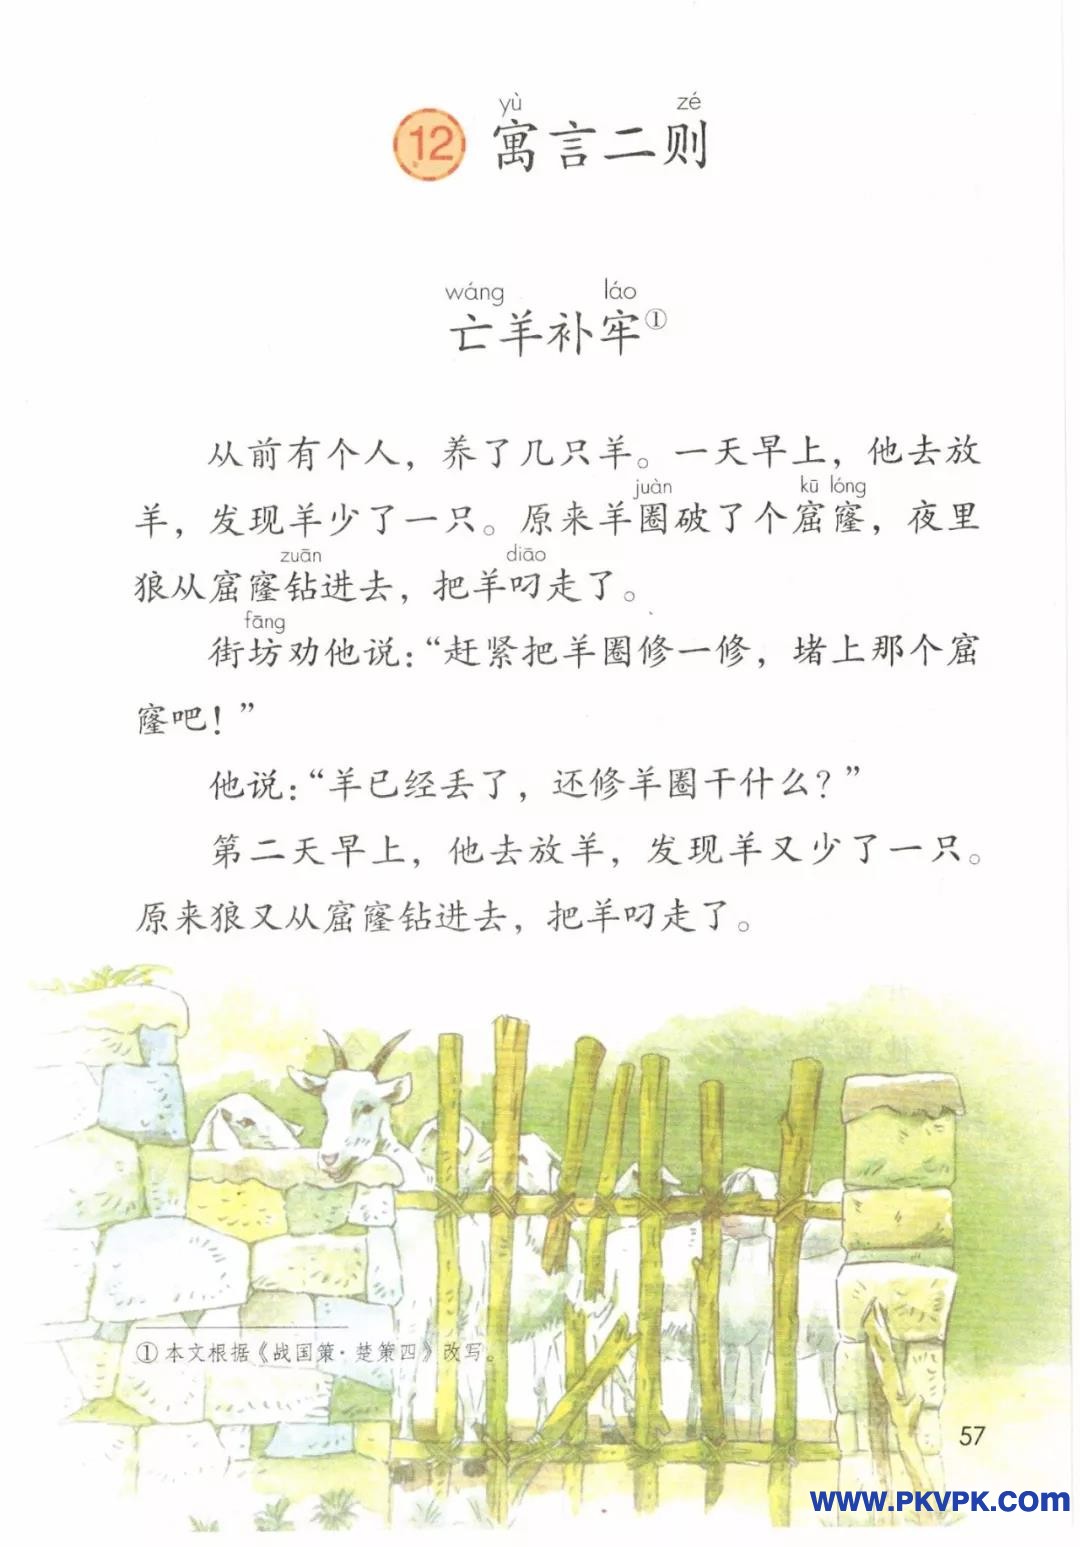 yù zé
12 寓言二则
wáng láo
亡羊补牢①
从前有个人，养了几只羊。一天早上，他去放
juàn kū lóng
羊，发现羊少了一只。原来羊圈破了个窟窿，夜里
zuān diāo
狼从窟窿钻进去，把羊叼走了。
fāng
街坊劝他说：“赶紧把羊圈修一修，堵上那个窟
窿吧！”
他说：“羊已经丢了，还修羊圈干什么？”
第二天早上，他去放羊，发现羊又少了一只。
原来狼又从窟窿钻进去，把羊叼走了。
①本文根据《战国策·楚策四》改写。
57
www.PKVPK.com